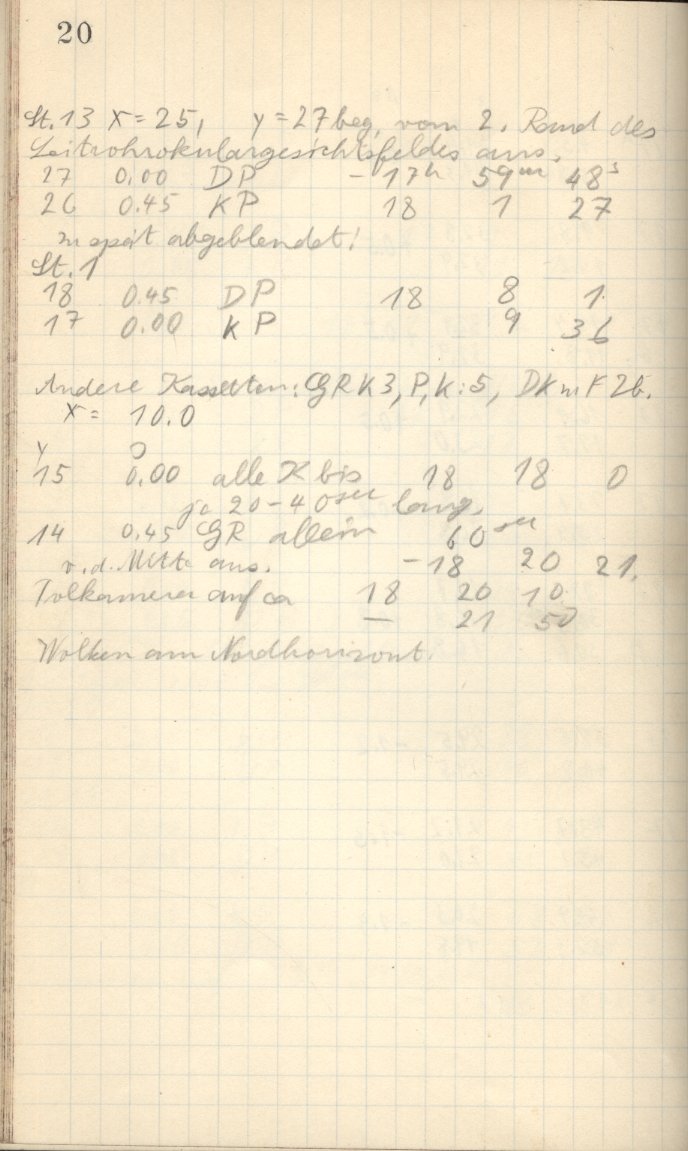 20
St. 13 X = 25, y = 27 beg. vom 2. Rand des
Leitrohrokulargesichtsfeldes aus.
27 0.00 DP – 17h 59m 48s
26 0.45 KP 18 1 27
zu spät abgeblendet!
St. 1
18 0.45 DP 18 8 1
17 0.00 KP 9 36
Andere Kassetten: GR K 3, P, K: 5, DK m F 26.
X = 10.0
y
15 0.00 alle K bis 18 18 0
je 20–40sec lang.
14 0.45 GR allein 60sec
v. d. Mitte aus. – 18 20 21.
auf ca 18 20 10
– 21 50
Wolken am Nordhorizont.